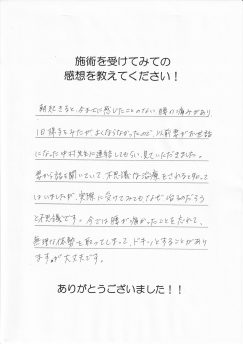 施術を受けてみての
感想を教えてください！
朝起きると、今までに感じたことのない腰の痛みがあり
1日様子をみたがよくならなかったので、以前妻がお世話
になった中村先生に連絡してもらい、見ていただきました。
妻から話を聞いていて、不思議な治療をされると知って
はいましたが、実際に受けてみてもなぜ治るのだろう
と不思議です。今では腰が痛かったことを忘れて、
無理な体勢を取ってしまって、ドキッとすることがあり
ますが大丈夫です。
ありがとうございました！！